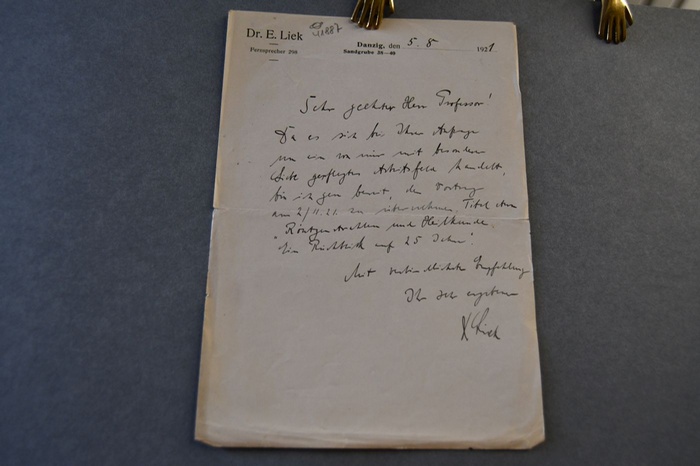 Dr. E. Liek
Fernsprecher 298
Danzig, den 5. 8 1921
Sandgrube 28-48
Sehr geehrter Herr Professor!
Da es sich bei Ihrer Anfrage
um ein von mir mit besonderer
Liebe gepflegtes Arbeitsfeld handelt,
bin ich gern bereit, den Vortrag
am 2/11.21. zu übernehmen. Titel etwa
"Röntgenstrahlen und Heilkunde.
Ein Rückblick auf 25 Jahre".
Mit verbindlichster Empfehlung
Ihr sehr ergebener
Liek